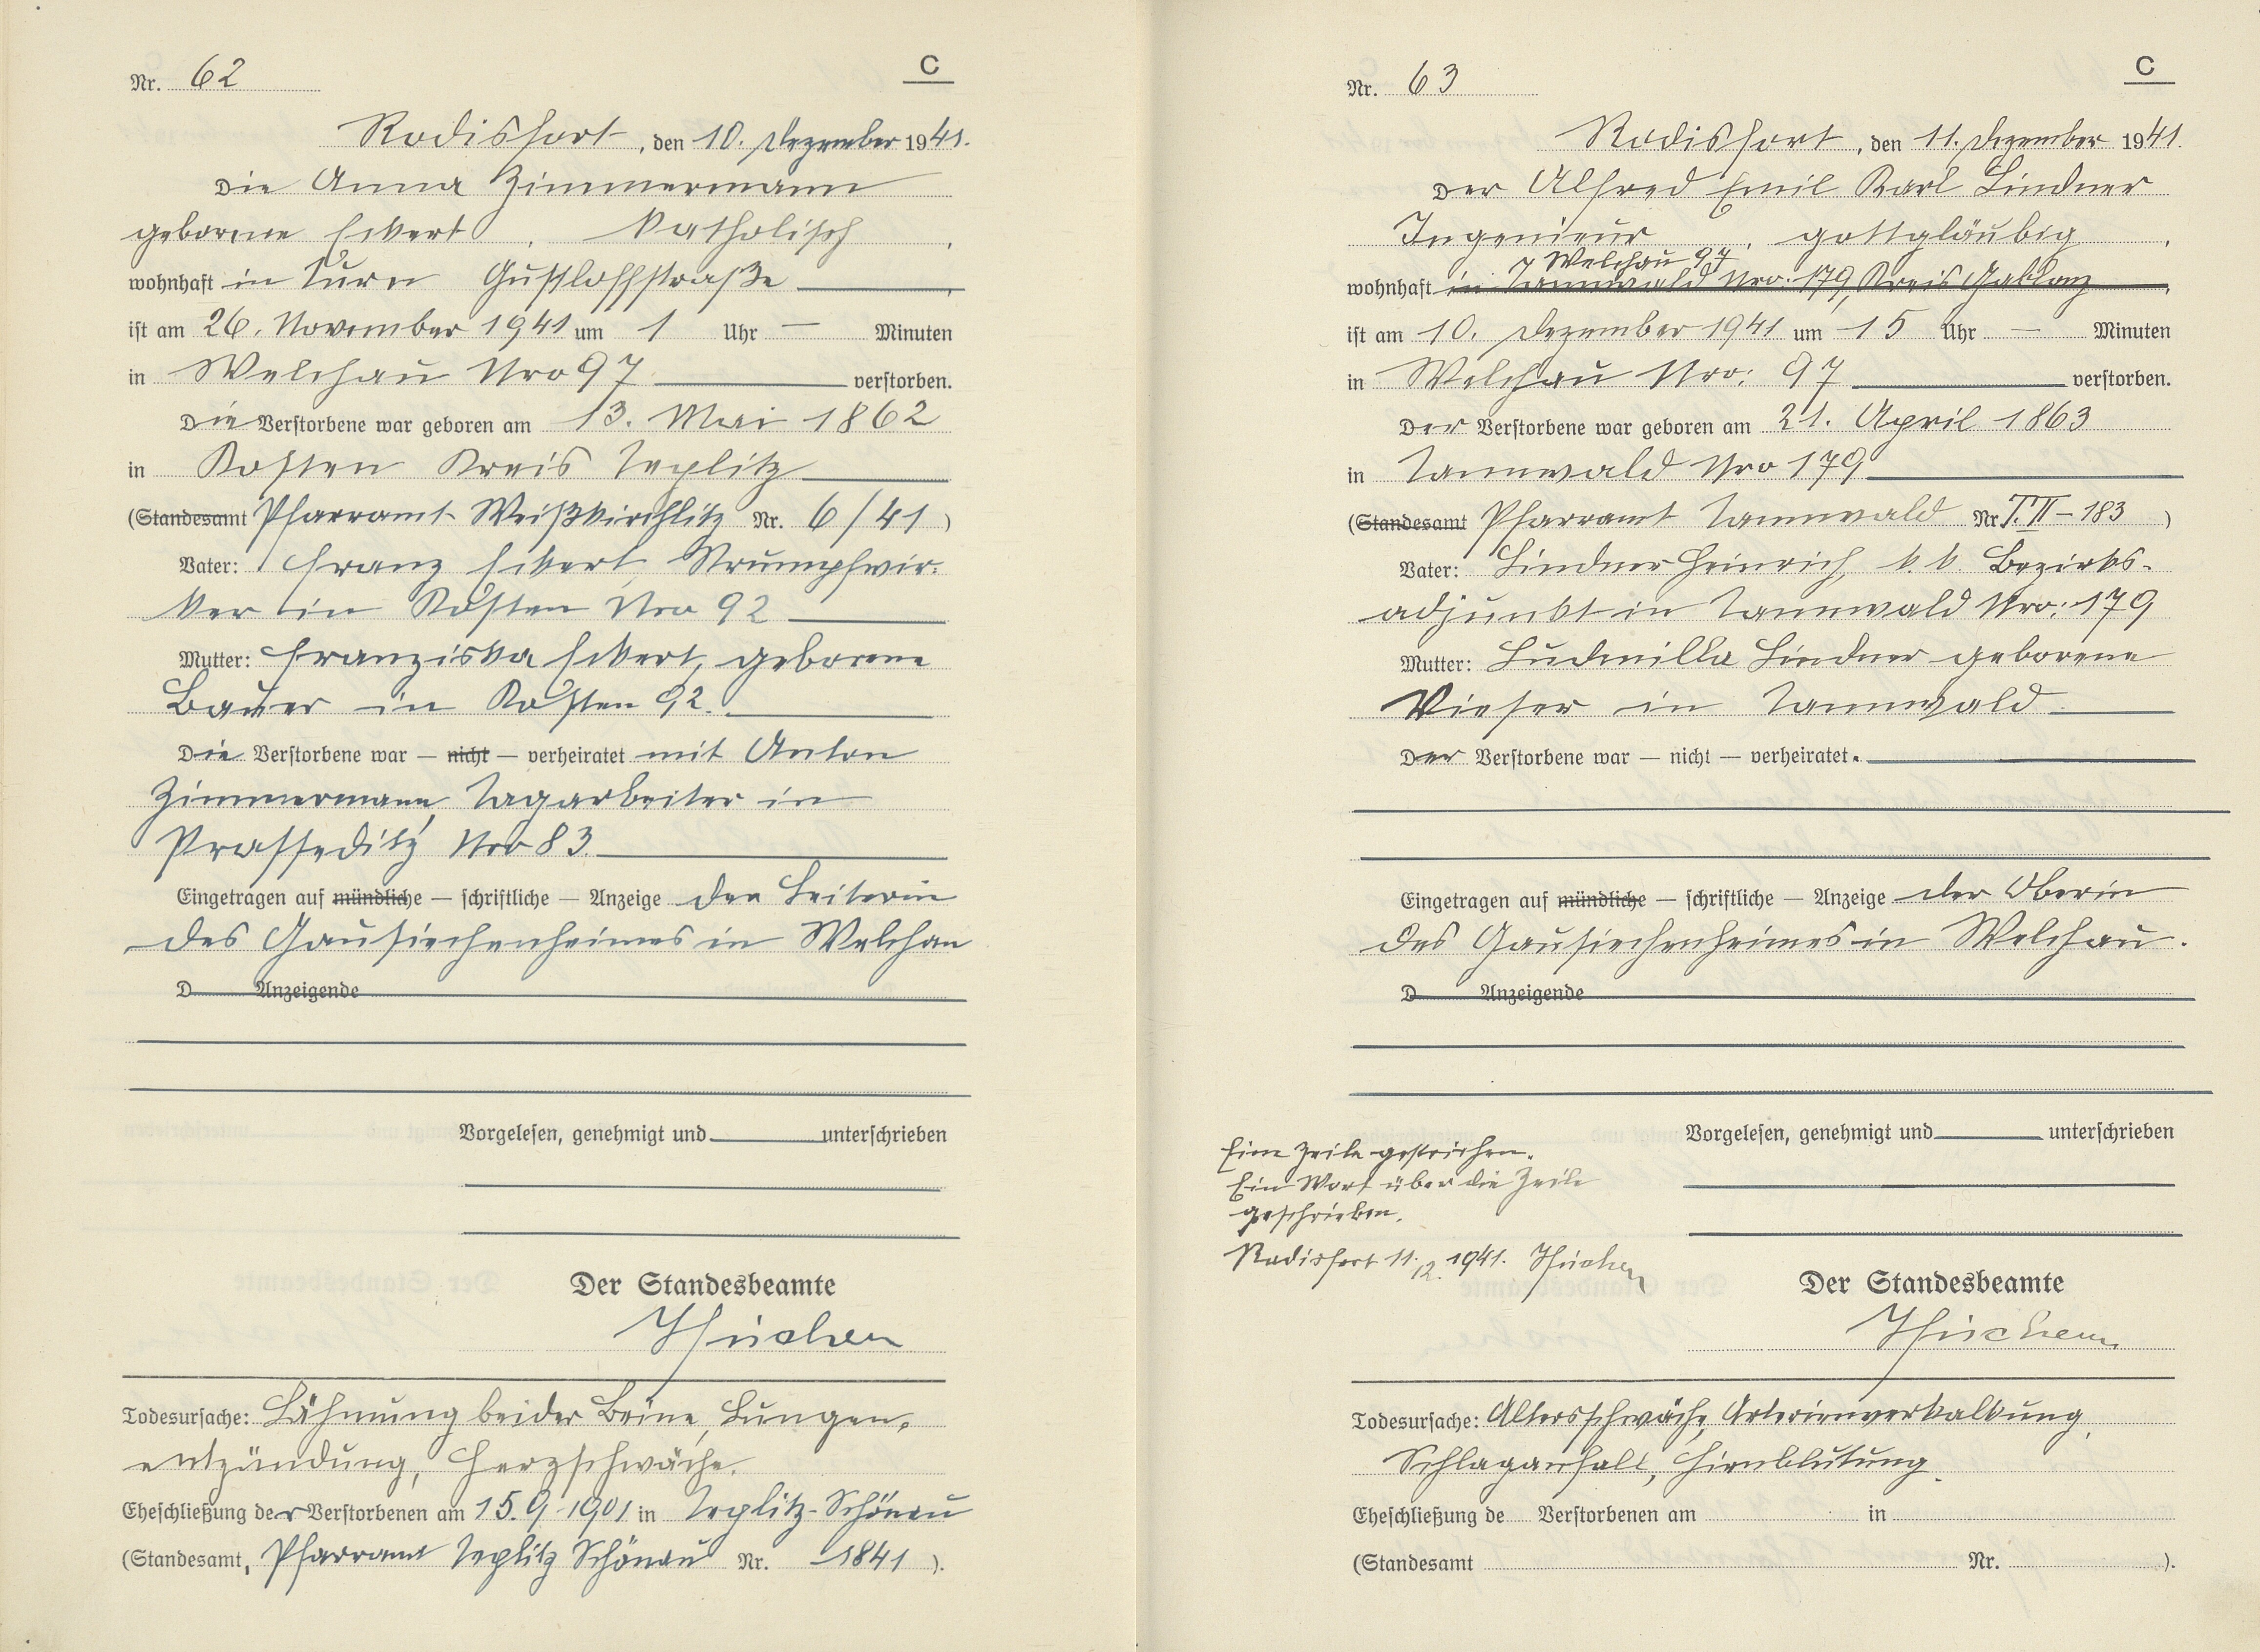 Nr. 62
C
Rodisfort, den 10. Dezember 1941.
Die Anna Zimmermann
geborene Eckert, katholisch,
wohnhaft in Turn Gustloffstraße
ist am 26. November 1941 um 1 Uhr — Minuten
in Welchau Nro 97 verstorben.
Die Verstorbene war geboren am 13. Mai 1862
in Kosten Kreis Teplitz
(Standesamt Pfarramt Weißkirchlitz Nr. 6/41)
Vater: Franz Eckert, Strumpfwir-
ker in Kosten Nro 92
Mutter: Franziska Eckert, geborene
Bauer in Kosten 92.
Die Verstorbene war — nicht — verheiratet mit Anton
Zimmermann, Tagarbeiter in
Prasseditz Nro 83.
Eingetragen auf mündliche — schriftliche — Anzeige der Leiterin
des Gausiechenheimes in Welchau
D Anzeigende
Vorgelesen, genehmigt und unterschrieben
Der Standesbeamte
Todesursache: Lähmung beider Beine, Lungen-
entzündung, Herzschwäche.
Eheschließung der Verstorbenen am 15.9.1901 in Teplitz-Schönau
(Standesamt, Pfarramt Teplitz Schönau Nr. 1841).
Nr. 63
C
Rodisfort, den 11. Dezember 1941.
Der Alfred Emil Karl Lindner
Ingenieur, gottgläubig,
Welchau 97
wohnhaft in Tannwald Nro: 179, Kreis Gablonz,
ist am 10. Dezember 1941 um 15 Uhr — Minuten
in Welchau Nro: 97 verstorben.
Der Verstorbene war geboren am 21. April 1863
in Tannwald Nro 179
(Standesamt Pfarramt Tannwald Nr. T. II - 183)
Vater: Lindner Heinrich, k. k. Bezirks-
adjunkt in Tannwald Nro: 179
Mutter: Ludmilla Lindner geborene
Wieser in Tannwald
Der Verstorbene war — nicht — verheiratet.
Eingetragen auf mündliche — schriftliche — Anzeige der Oberin
des Gausiechenheimes in Welchau.
D Anzeigende
Vorgelesen, genehmigt und unterschrieben
Eine Zeile gestrichen.
Ein Wort über die Zeile
geschrieben.
Rodisfort 11.12.1941.
Der Standesbeamte
Todesursache: Altersschwäche, Arterienverkalkung,
Schlaganfall, Hirnblutung.
Eheschließung de Verstorbenen am in
(Standesamt Nr. ).